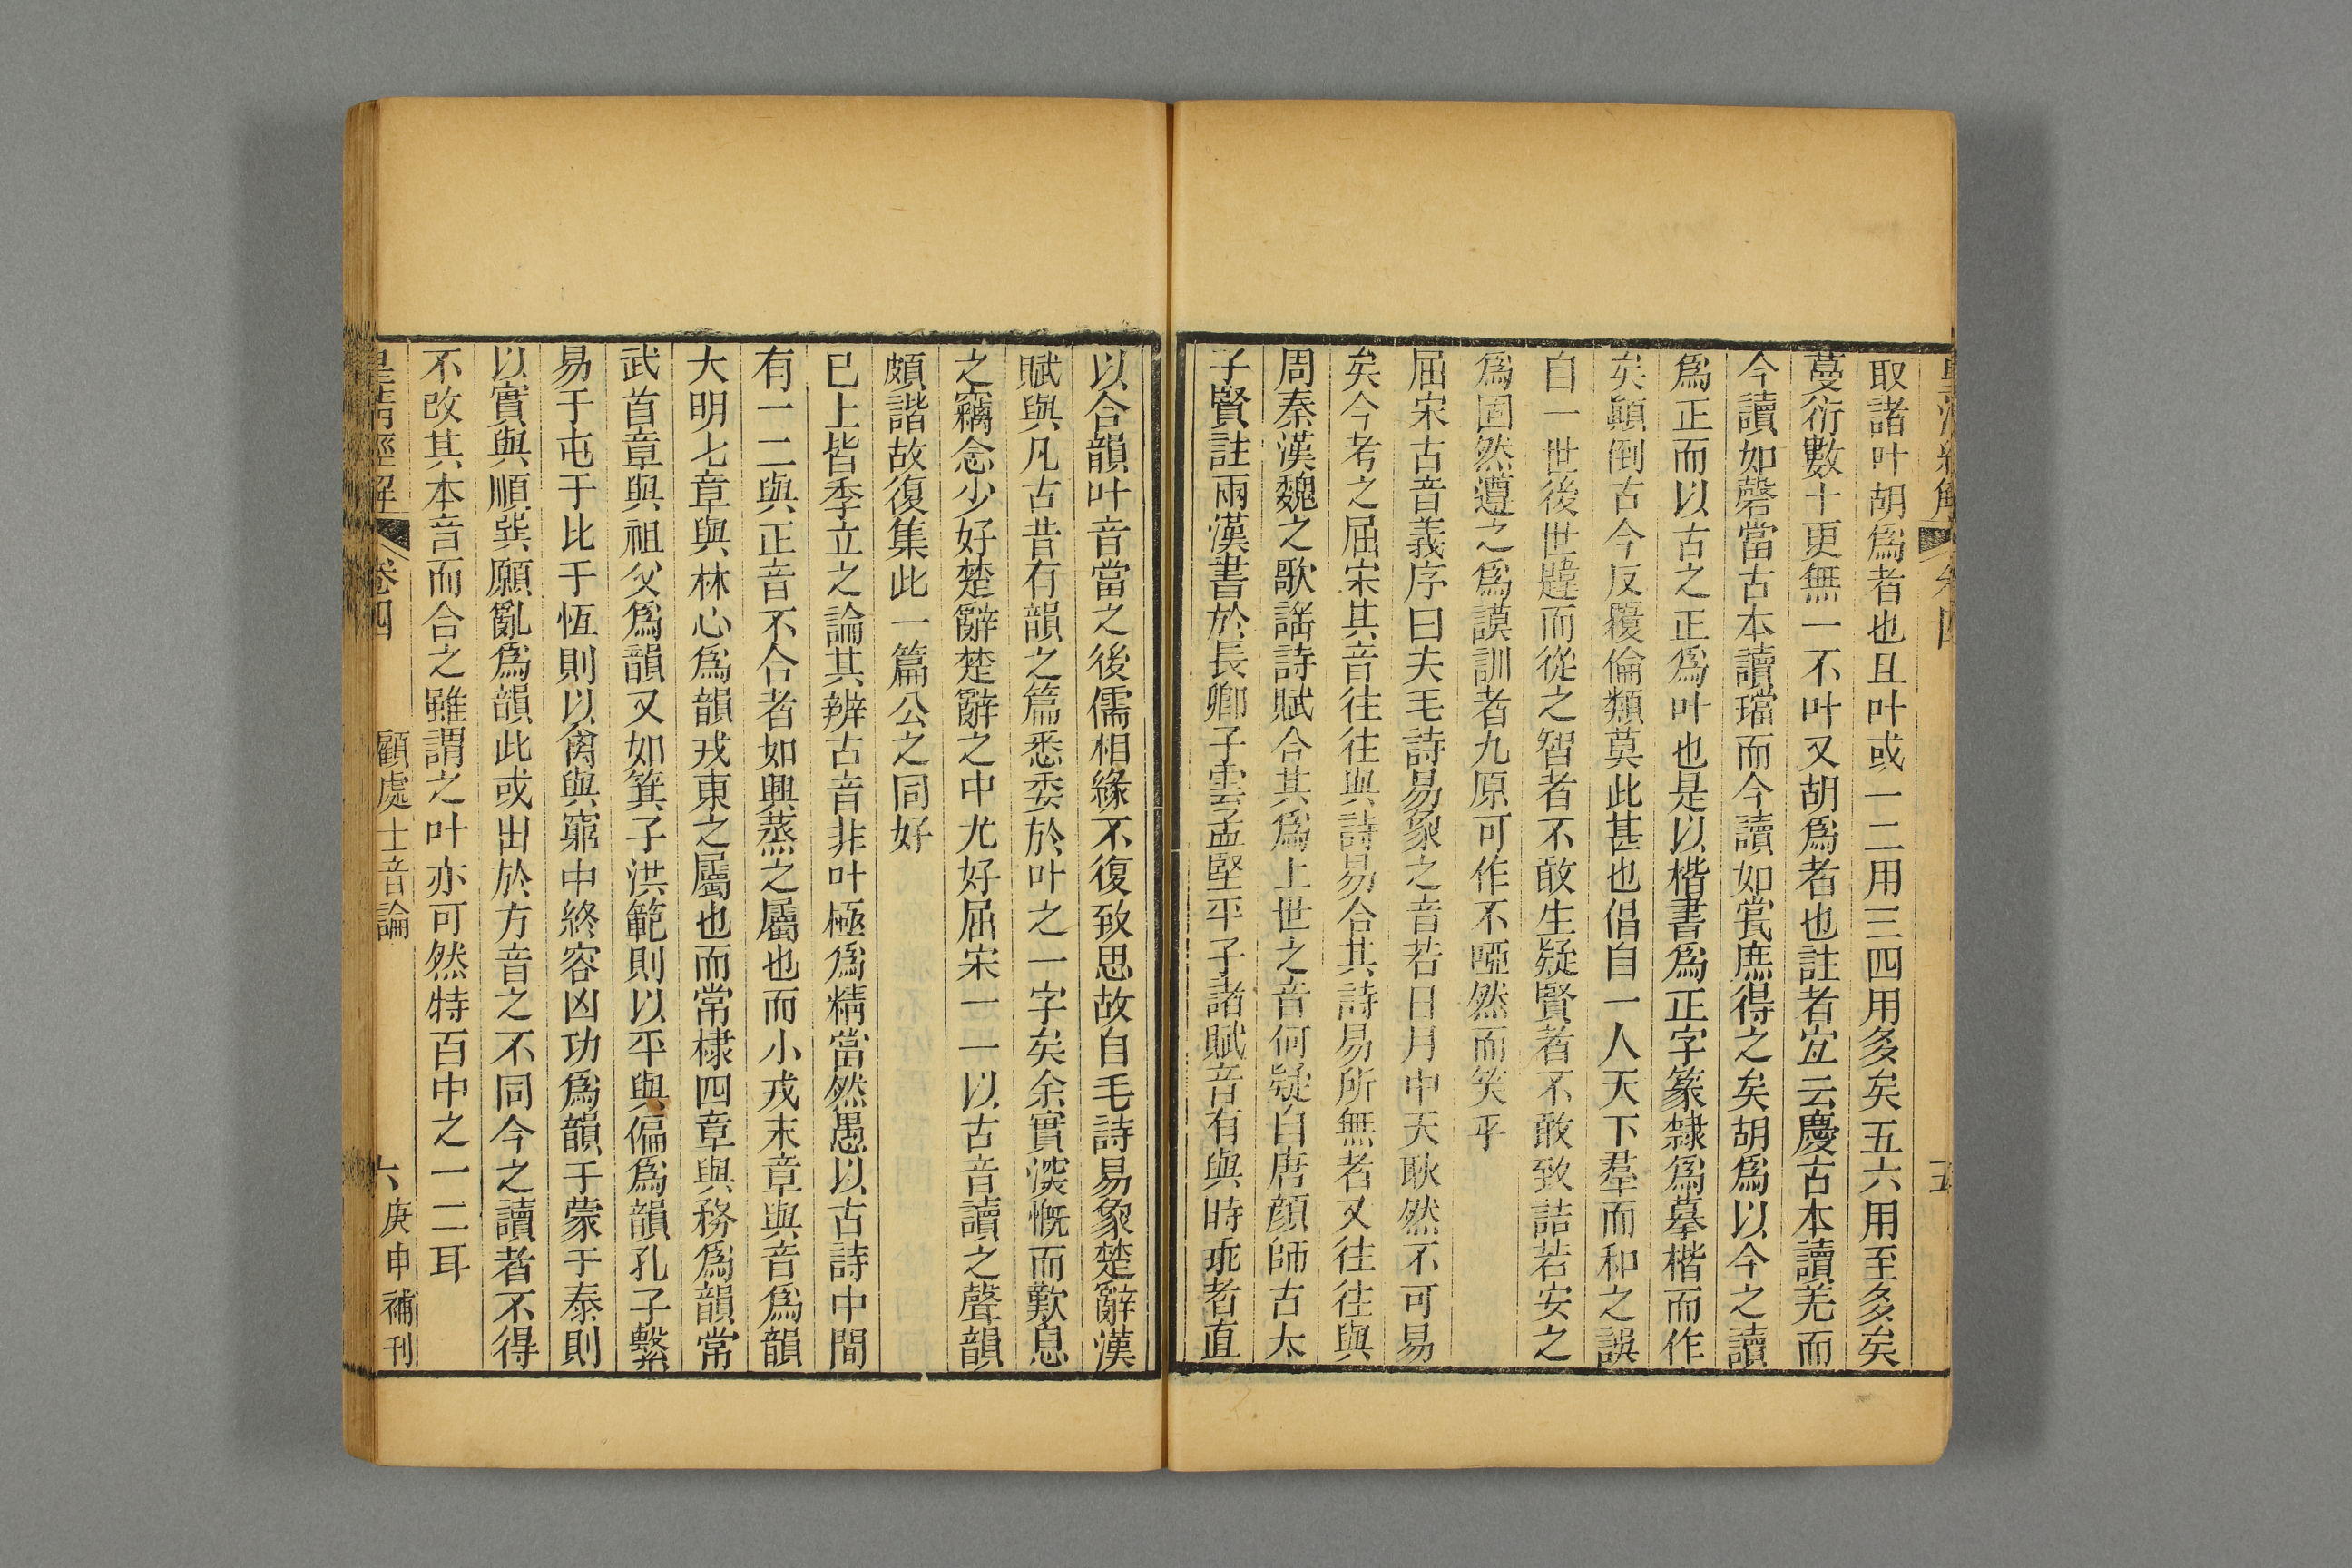 皇清經解 卷四
五
取諸叶胡爲者也且叶或一二用三四用多矣五六用至多矣
蔓衍數十更無一不叶又胡爲者也註者宐云慶古本讀羌而
今讀如磬當古本讀璫而今讀如甞庶得之矣胡爲以今之讀
爲正而以古之正爲叶也是以楷書爲正字篆隸爲摹楷而作
矣顛倒古今反覆倫類莫此甚也倡自一人天下羣而和之誤
自一世後世韙而從之智者不敢生疑賢者不敢致詰若安之
爲固然遵之爲謨訓者九原可作不啞然而笑乎
屈宋古音義序曰夫毛詩易象之音若日月中天耿然不可易
矣今考之屈宋其音往往與詩易合其詩易所無者又往往與
周秦漢魏之歌謠詩賦合其爲上世之音何疑自唐顏師古太
子賢註兩漢書於長卿子雲孟堅平子諸賦音有與時乖者直
以合韻叶音當之後儒相緣不復致思故自毛詩易象楚辭漢
賦與凡古昔有韻之篇悉委於叶之一字矣余實深慨而歎息
之竊念少好楚辭楚辭之中尤好屈宋一一以古音讀之聲韻
頗諧故復集此一篇公之同好
已上皆季立之論其辨古音非叶極爲精當然愚以古詩中間
有一二與正音不合者如興蒸之屬也而小戎末章與音爲韻
大明七章與林心爲韻戎東之屬也而常棣四章與務爲韻常
武首章與祖父爲韻又如箕子洪範則以平與偏爲韻孔子繫
易于屯于比于恆則以禽與窮中終容凶功爲韻于蒙于泰則
以實與順巽願亂爲韻此或出於方音之不同今之讀者不得
不改其本音而合之雖謂之叶亦可然特百中之一二耳
皇清經解 卷四 顧處士音論 六 庚申補刊